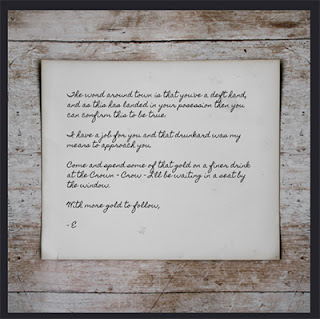 The word around town is that you've a deft hand,
and as this has landed in your posession then you
can confirm this to be true.
I have a job for you and that drunkard was my
means to approach you.
Come and spend some of that gold on a finer drink
at the Crown - Crow - I'll be waiting in a seat by
the window.
With more gold to follow,
- E